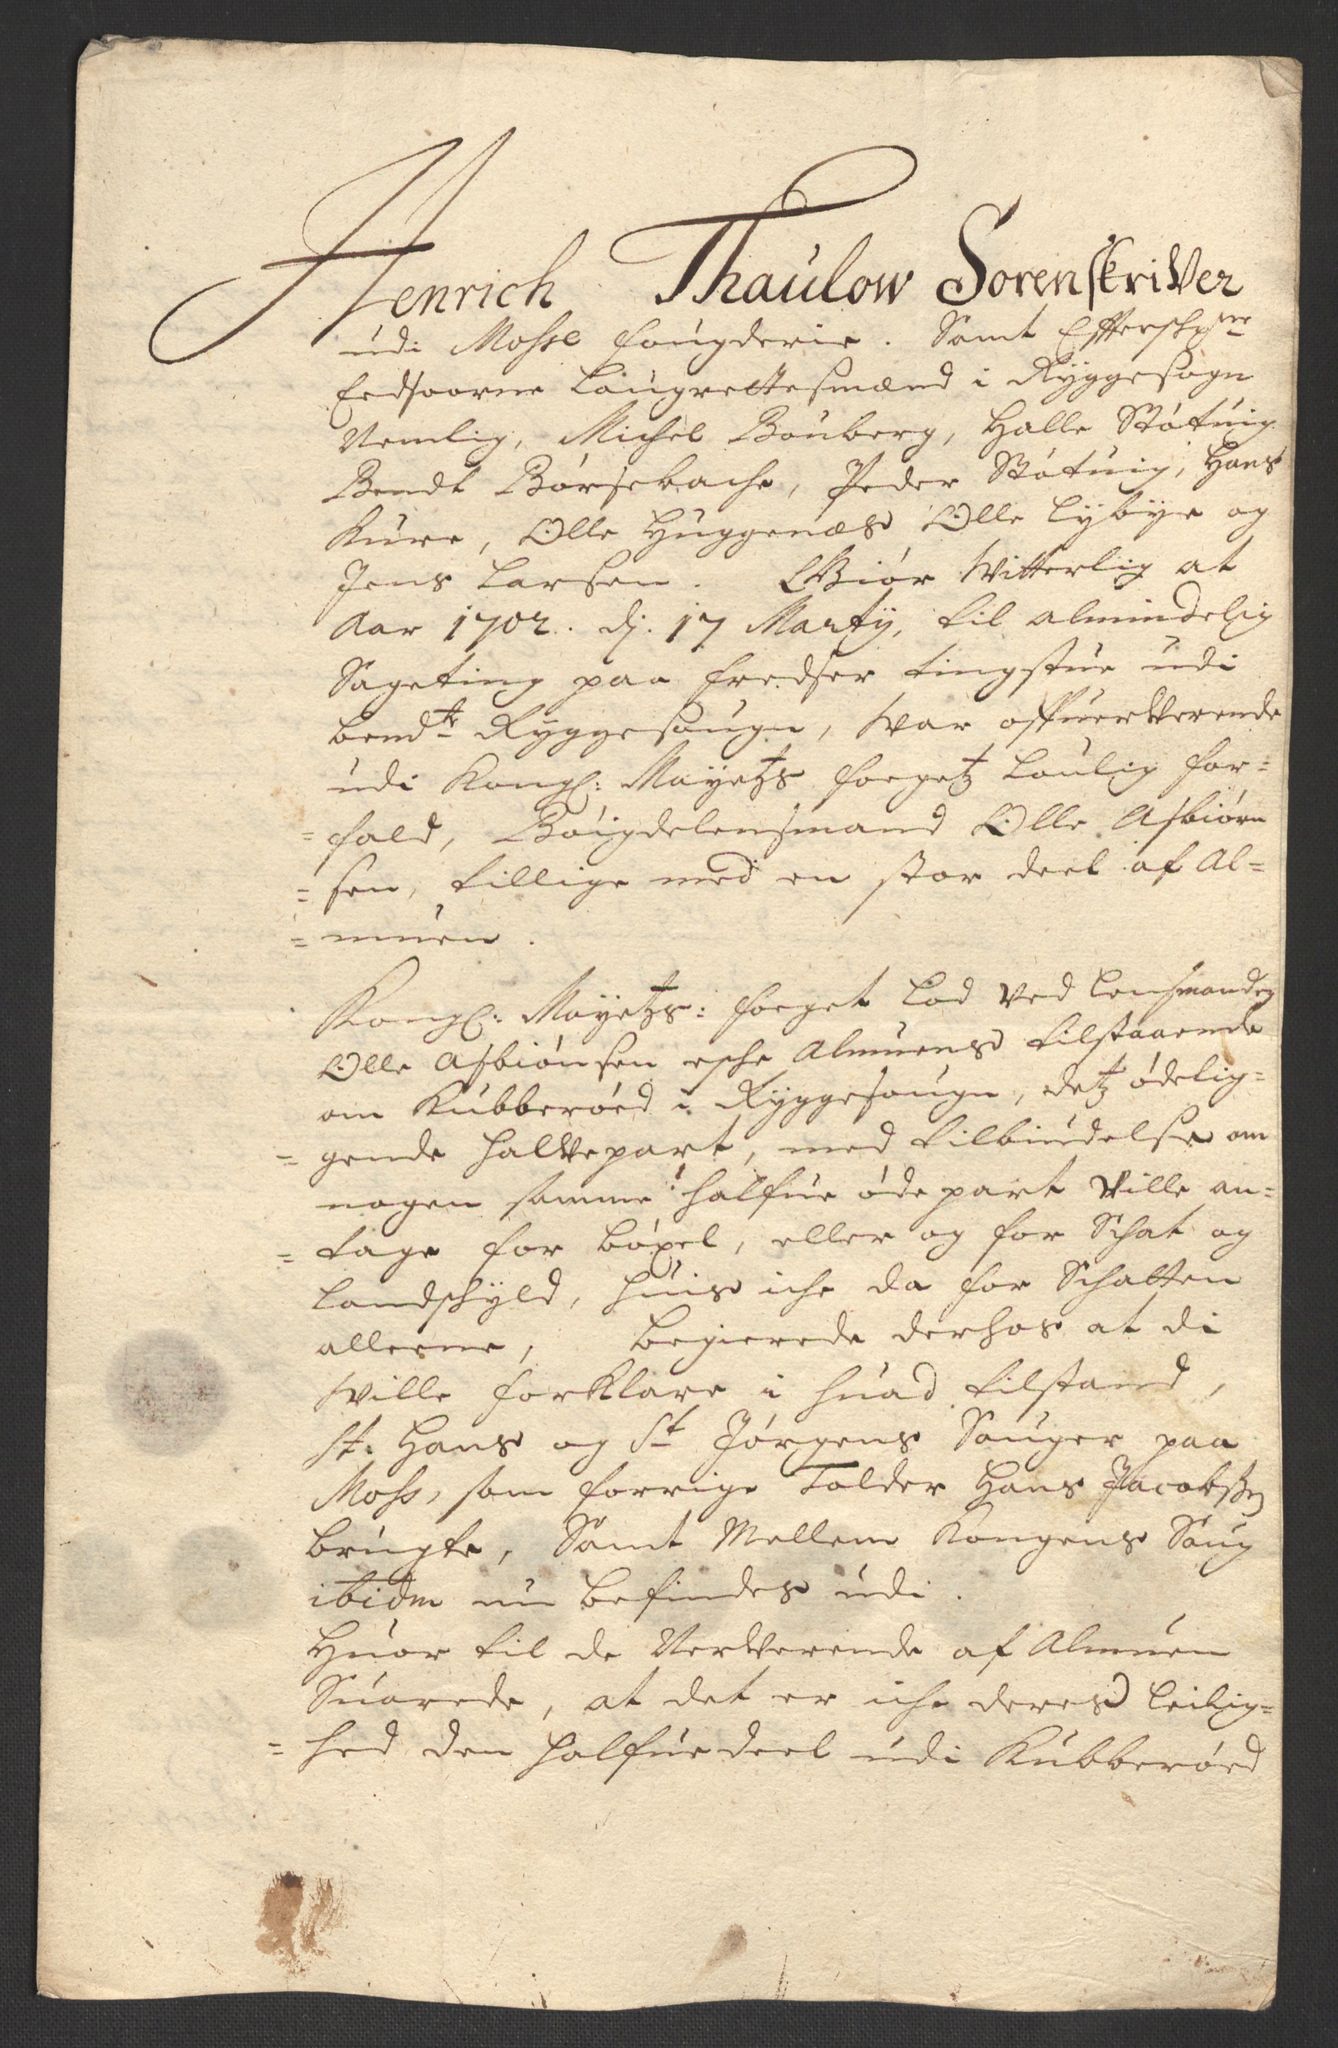 Henrich Thaulow Sorenskriver
udi Mosse fougderie. Samt Effterschrne
Eedsoorne Laugrettesmænd i Ryggesogn
Nemlig, Michel Bouberg, Halle Støtuig
Bendt Børsebache, Peder Støtuig, Hans
Kure, Olle Huggenæs Olle Lybye og
Jens Larsen. Giør Witterlig at
Aar 1702. dj. 17 Marty, til almindelig
Sageting paa Fredser tingstue udi
bemdte Ryggesougn, War offuerverende
udi Kongl: Mayetz fogetz Loulig for=
=fald, Bøigdelensmand Olle Asbiørn
=sen, tillige med en stor deel af Al=
=muen.
Kongl: Mayetz: foeget Lod ved Lensmanden
Olle Asbiønsen esche Almuens tilstaaende
om Kubberøed i Ryggesougn, detz ødelig=
=gende halvepart, med tilbiudelse om
nogen samme halfue øde part Ville an=
=tage for bøxel, eller og for Schat og
Landschyld, huis iche da for Schatten
alleene, begierede derhos at di
Wille forklare i huad tilstand,
St. Hans og St Jørgens Sauger paa
Moss, som forrige Tolder Hans Jacobsen
brugte, Samt Mellem Kongens Saug
ibidm nu befindes udi.
Huor til de Nerverende af Almuen
Suarede, at det er iche deres Leilig=
=hed den halfuedeel udi Kubberøed